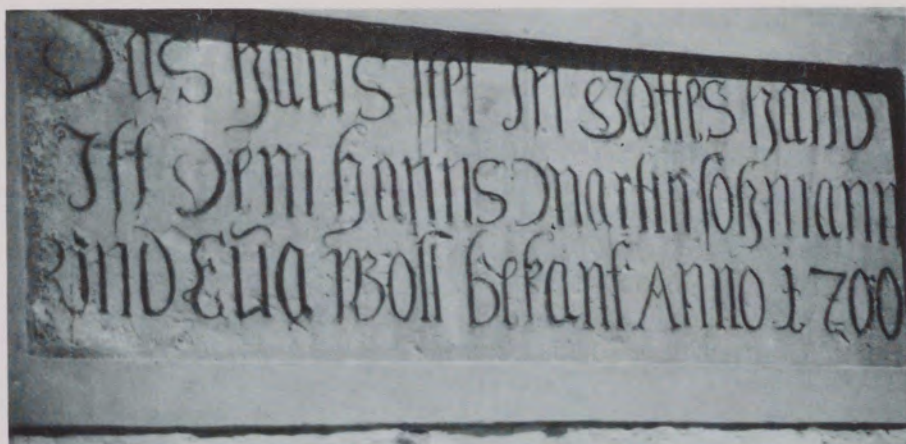 Das haus stet in Gottes hand
Ist Dem hanns Martin
Vnd Eua Woll bekant Anno 1700